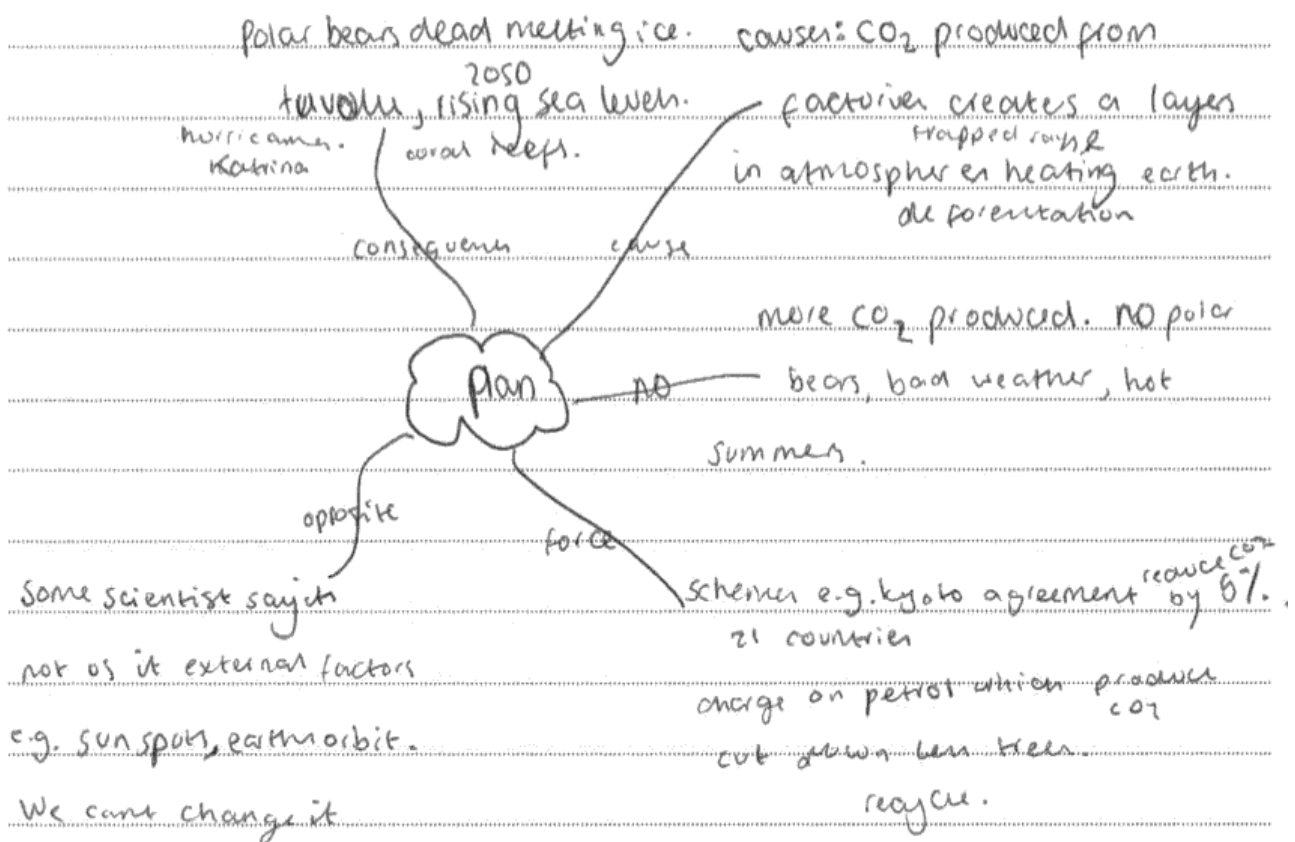 Polar bears dead melting ice.
2050
tuvalu, rising sea levels.
hurricanes. coral reefs.
Katrina
consequences
causes: CO2 produced from
factories creates a layer
trapped rays &
in atmospheres heating earth.
deforestation
cause
plan
more CO2 produced. no polar
NO bears, bad weather, hot
summers.
opposite
some scientist say its
not os it external factors
e.g. sunspots, earths orbit.
We cant change it
force
schemes e.g. kyoto agreement reduce CO2
by
21 countries
charge on petrol which produce
CO2
cut down less trees.
recycle.